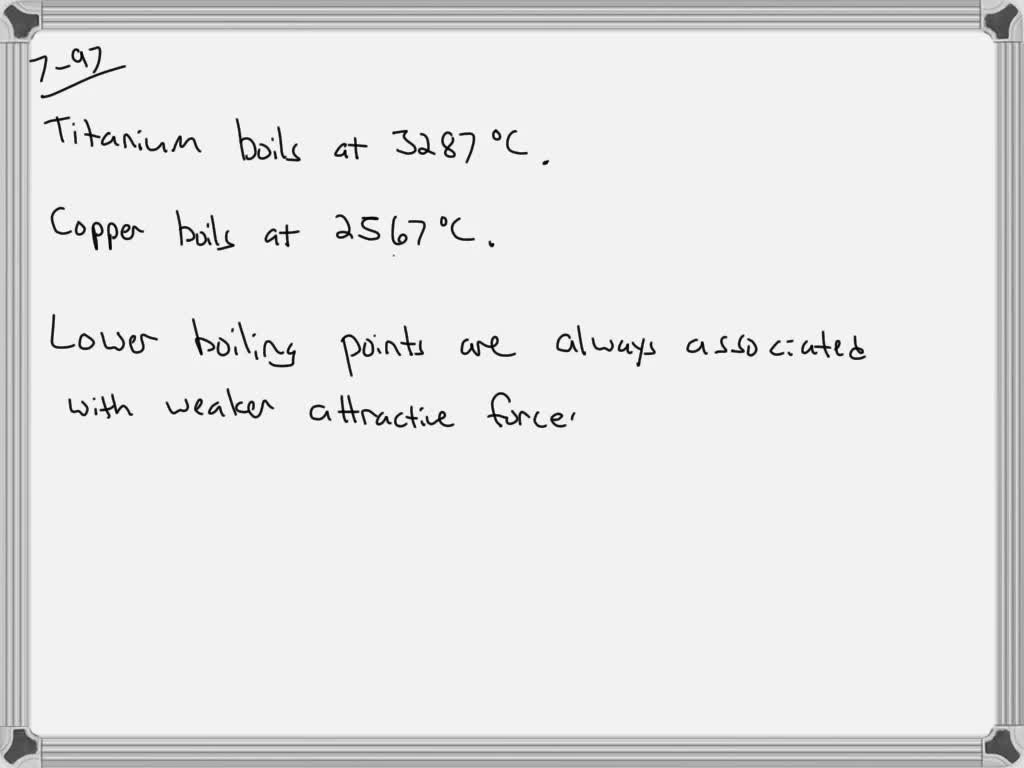 7-97
Titanium boils at 3287°C.
Copper boils at 2567°C.
Lower boiling points are always associated
with weaker attractive force